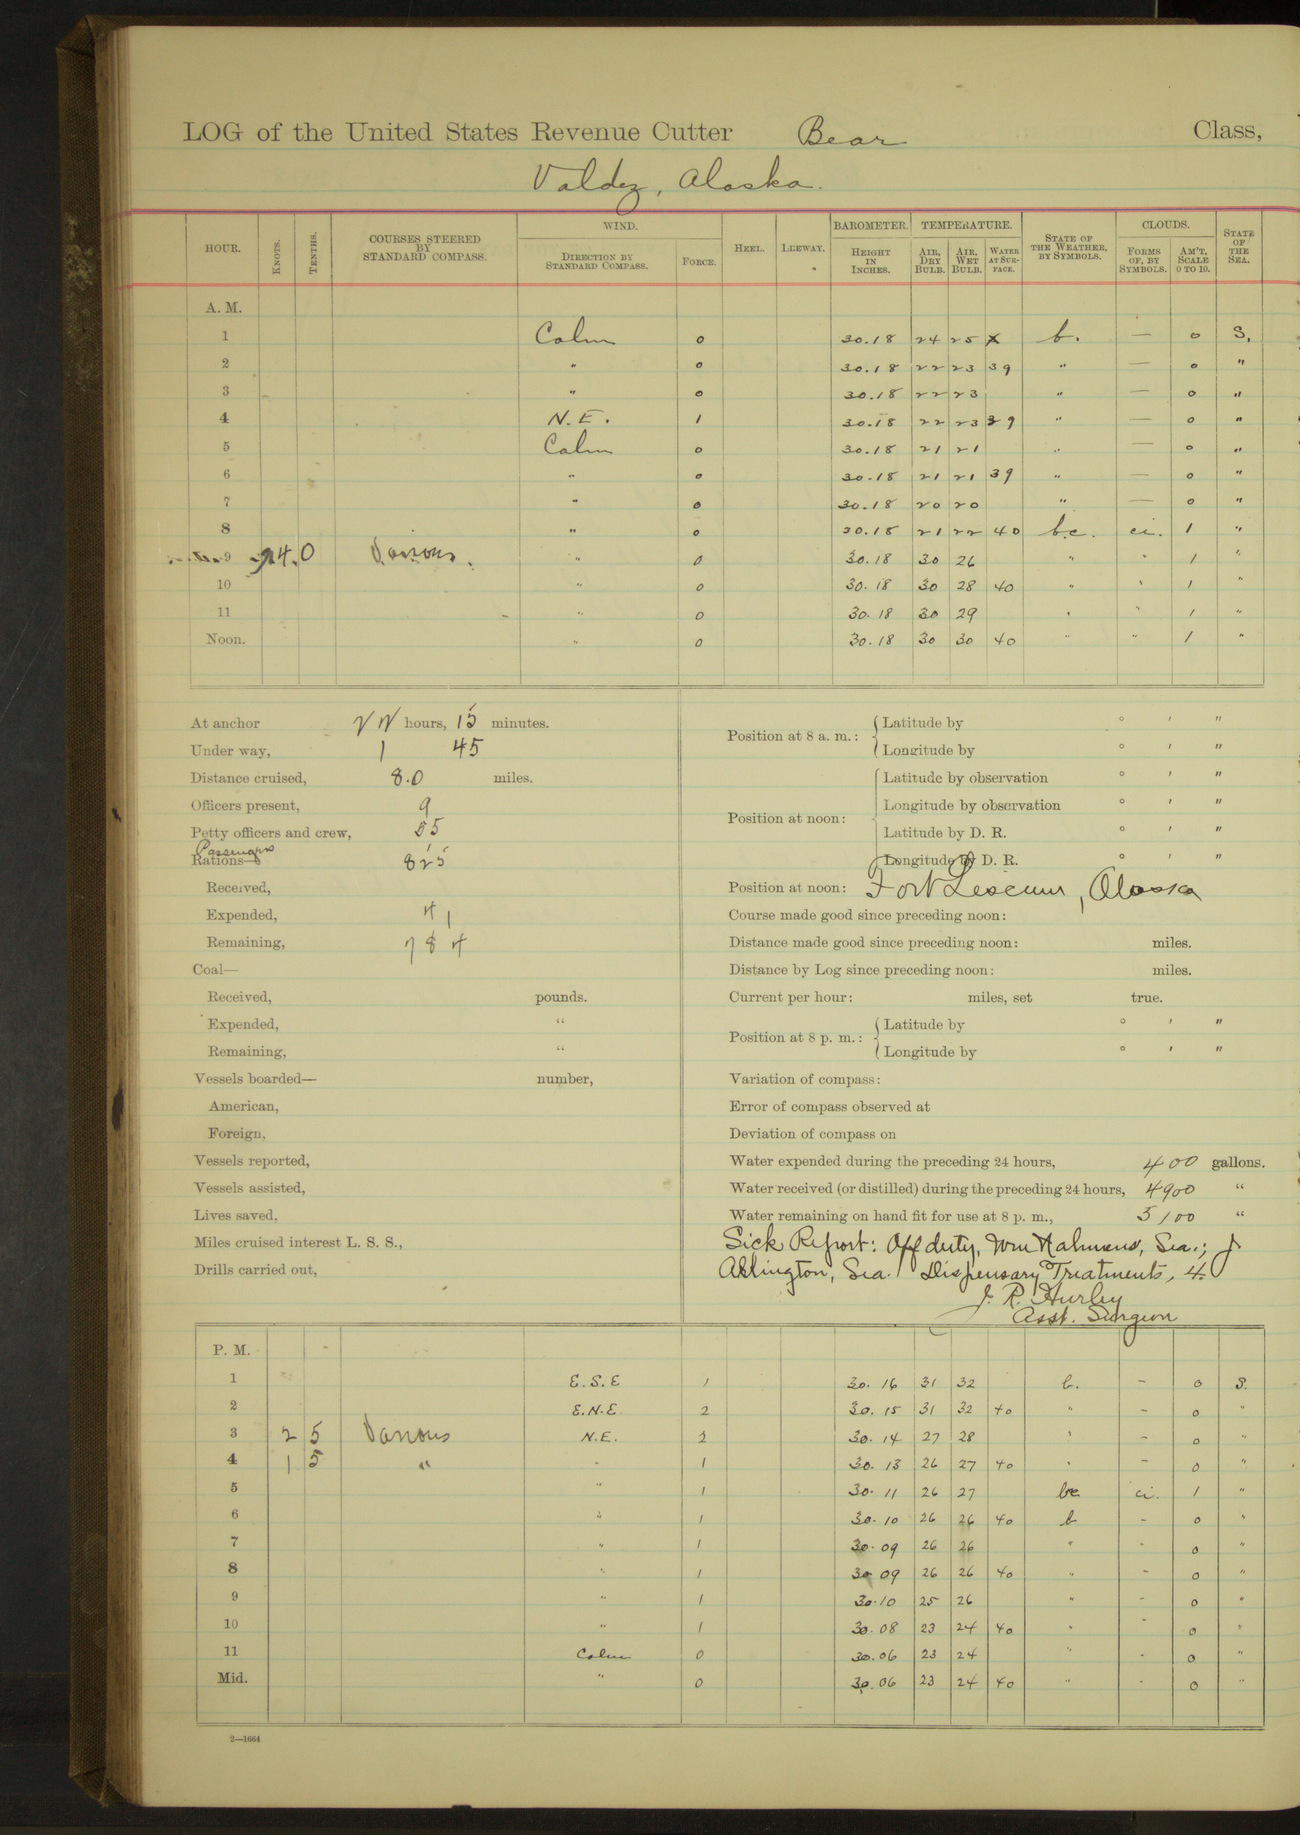 LOG of the United States Revenue Cutter Bear Class,
Valdez, Alaska.
HOUR. KNOTS. TENTHS. COURSES STEERED BY STANDARD COMPASS. WIND. DIRECTION BY STANDARD COMPASS. FORCE. HEEL. LEEWAY. BAROMETER. HEIGHT IN INCHES. TEMPERATURE. AIR, DRY BULB. AIR, WET BULB. WATER AT SURFACE. STATE OF THE WEATHER, BY SYMBOLS. CLOUDS. FORMS OF, BY SYMBOLS. AM'T, SCALE 0 TO 10. STATE OF THE SEA.
A. M.
1 Calm 0 30.18 24 25 b. — 0 S.
2 " 0 30.18 22 23 39 " — 0 "
3 " 0 30.18 22 23 " — 0 "
4 N.E. 1 30.18 22 23 39 " — 0 "
5 Calm 0 30.18 21 21 " — 0 "
6 " 0 30.18 21 21 39 " — 0 "
7 " 0 30.18 20 20 " — 0 "
8 " 0 30.18 21 22 40 b.c. ci. 1 "
9 4.0 Various. " 0 30.18 30 26 " " 1 "
10 " 0 30.18 30 28 40 " " 1 "
11 " 0 30.18 30 29 " " 1 "
Noon. " 0 30.18 30 30 40 " " 1 "
At anchor 22 hours, 15 minutes.
Under way, 1 45
Distance cruised, 8.0 miles.
Officers present, 9
Petty officers and crew, 55
Passengers
Rations— 825
Received,
Expended, 41
Remaining, 784
Coal—
Received, pounds.
Expended, "
Remaining, "
Vessels boarded— number,
American,
Foreign,
Vessels reported,
Vessels assisted,
Lives saved,
Miles cruised interest L. S. S.,
Drills carried out,
Position at 8 a. m.: Latitude by ° ' "
Longitude by ° ' "
Position at noon: Latitude by observation ° ' "
Longitude by observation ° ' "
Latitude by D. R. ° ' "
Longitude by D. R. ° ' "
Position at noon: Fort Liscum, Alaska
Course made good since preceding noon:
Distance made good since preceding noon: miles.
Distance by Log since preceding noon: miles.
Current per hour: miles, set true.
Position at 8 p. m.: Latitude by ° ' "
Longitude by ° ' "
Variation of compass:
Error of compass observed at
Deviation of compass on
Water expended during the preceding 24 hours, 400 gallons.
Water received (or distilled) during the preceding 24 hours, 4900 "
Water remaining on hand fit for use at 8 p. m., 5100 "
Sick Report: Off duty, Wm Sea.; J.
Sea. Dispensary Treatments, 4.
J. R. Hurley
Asst. Surgeon
P. M.
1 E.S.E 1 30.16 31 32 b. - 0 S.
2 E.N.E. 2 30.15 31 32 40 " - 0 "
3 2 5 Various N.E. 2 30.14 27 28 " - 0 "
4 1 5 " " 1 30.13 26 27 40 " - 0 "
5 " 1 30.11 26 27 bc ci. 1 "
6 " 1 30.10 26 26 40 b - 0 "
7 " 1 30.09 26 26 " - 0 "
8 " 1 30.09 26 26 40 " - 0 "
9 " 1 30.10 25 26 " - 0 "
10 " 1 30.08 23 24 40 " - 0 "
11 Calm 0 30.06 23 24 " - 0 "
Mid. " 0 30.06 23 24 40 " - 0 "
2—1664